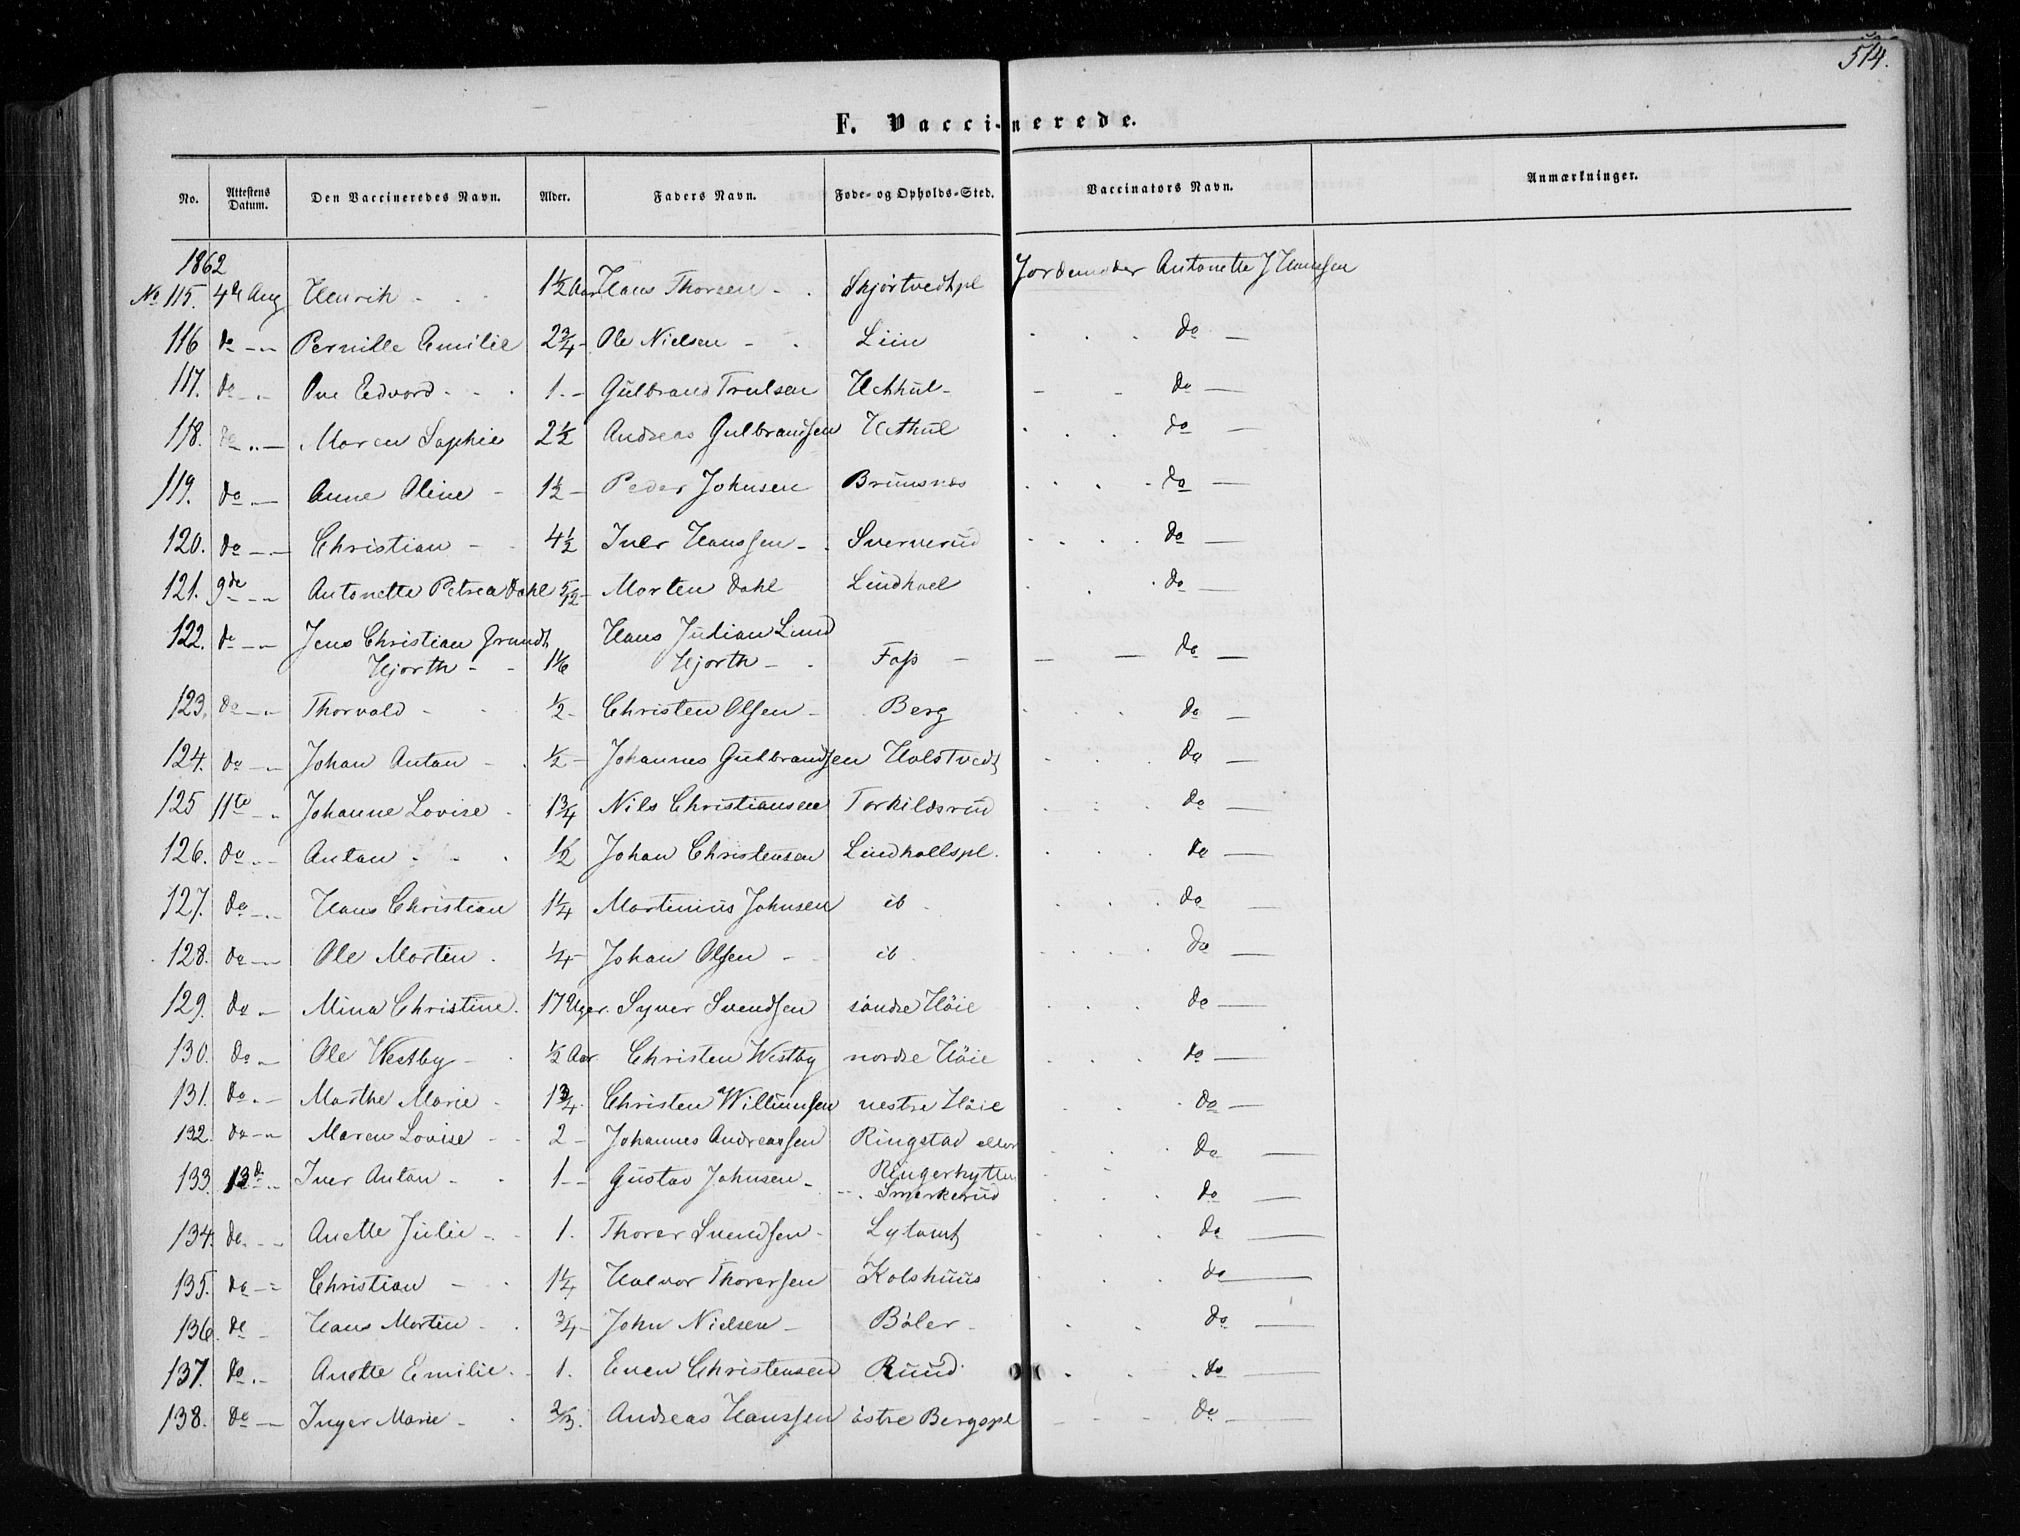 514.
F. Vaccinerede.
No. Attestens Datum. Den Vaccineredes Navn. Alder. Faders Navn. Føde- og Opholds-Sted. Vaccinators Navn. Anmærkninger.
1862
No 115. 4de Aug Henrik 1½ Aar Hans Thorsen Skjørtvedtpl Jordemoder Antonette J Hansen
116 do Pernille Emilie 2¾ Ole Nielsen Liin do
117. do Ove Edvard 1. Gulbrand Trulsen do
118. do Maren Sophie 2½ Andreas Gulbrandsen do
119. do Anne Oline 1½ Peder Johnsen Brunsnes do
120. do Christian 4½ Iver Hanssen Sververud do
121. 9de Antonette Petrea Dahl 5/12 Morten Dahl Lindhoel do
122. do Jens Christian Grundt Hans Julian Lund
Hjorth 1 1/6 Hjorth Foss do
123. do Thorvald ½ Christen Olsen Berg do
124. do Johan Anton ½ Johannes Gulbrandsen Holstvedt do
125 11te Johanne Lovise 1¾ Nils Christiansen Torkildsrud do
126. do Anton 1½ Johan Christensen Lindhollspl. do
127. do Hans Christian 1¼ Martinius Johnsen ib do
128. do Ole Morten ¼ Johan Olsen ib do
129. do Mina Christine. 17 Uger. Syver Svendsen søndre Høie do
130. do Ole Westby ½ Aar Christen Westby nordre Høie do
131. do Marthe Marie 1¾ Christen Willumsen vestre Høie do
132. do Maren Lovise 2 Johannes Andreassen Ringstad eller do
Ringerhytten
133. 13de Iver Anton 1 Gustav Johnsen Smerkerud do
134. do Anette Julie 1. Thorer Svendsen Lytomt do
135. do Christian 1¼ Halvor Thorersen Kolshuus do
136. do Hans Morten ¾ John Nielsen Bøler do
137. do Anette Emilie 1. Even Christensen Ruud do
138. do Inger Marie 2/3. Andreas Hanssen østre Bergspl do